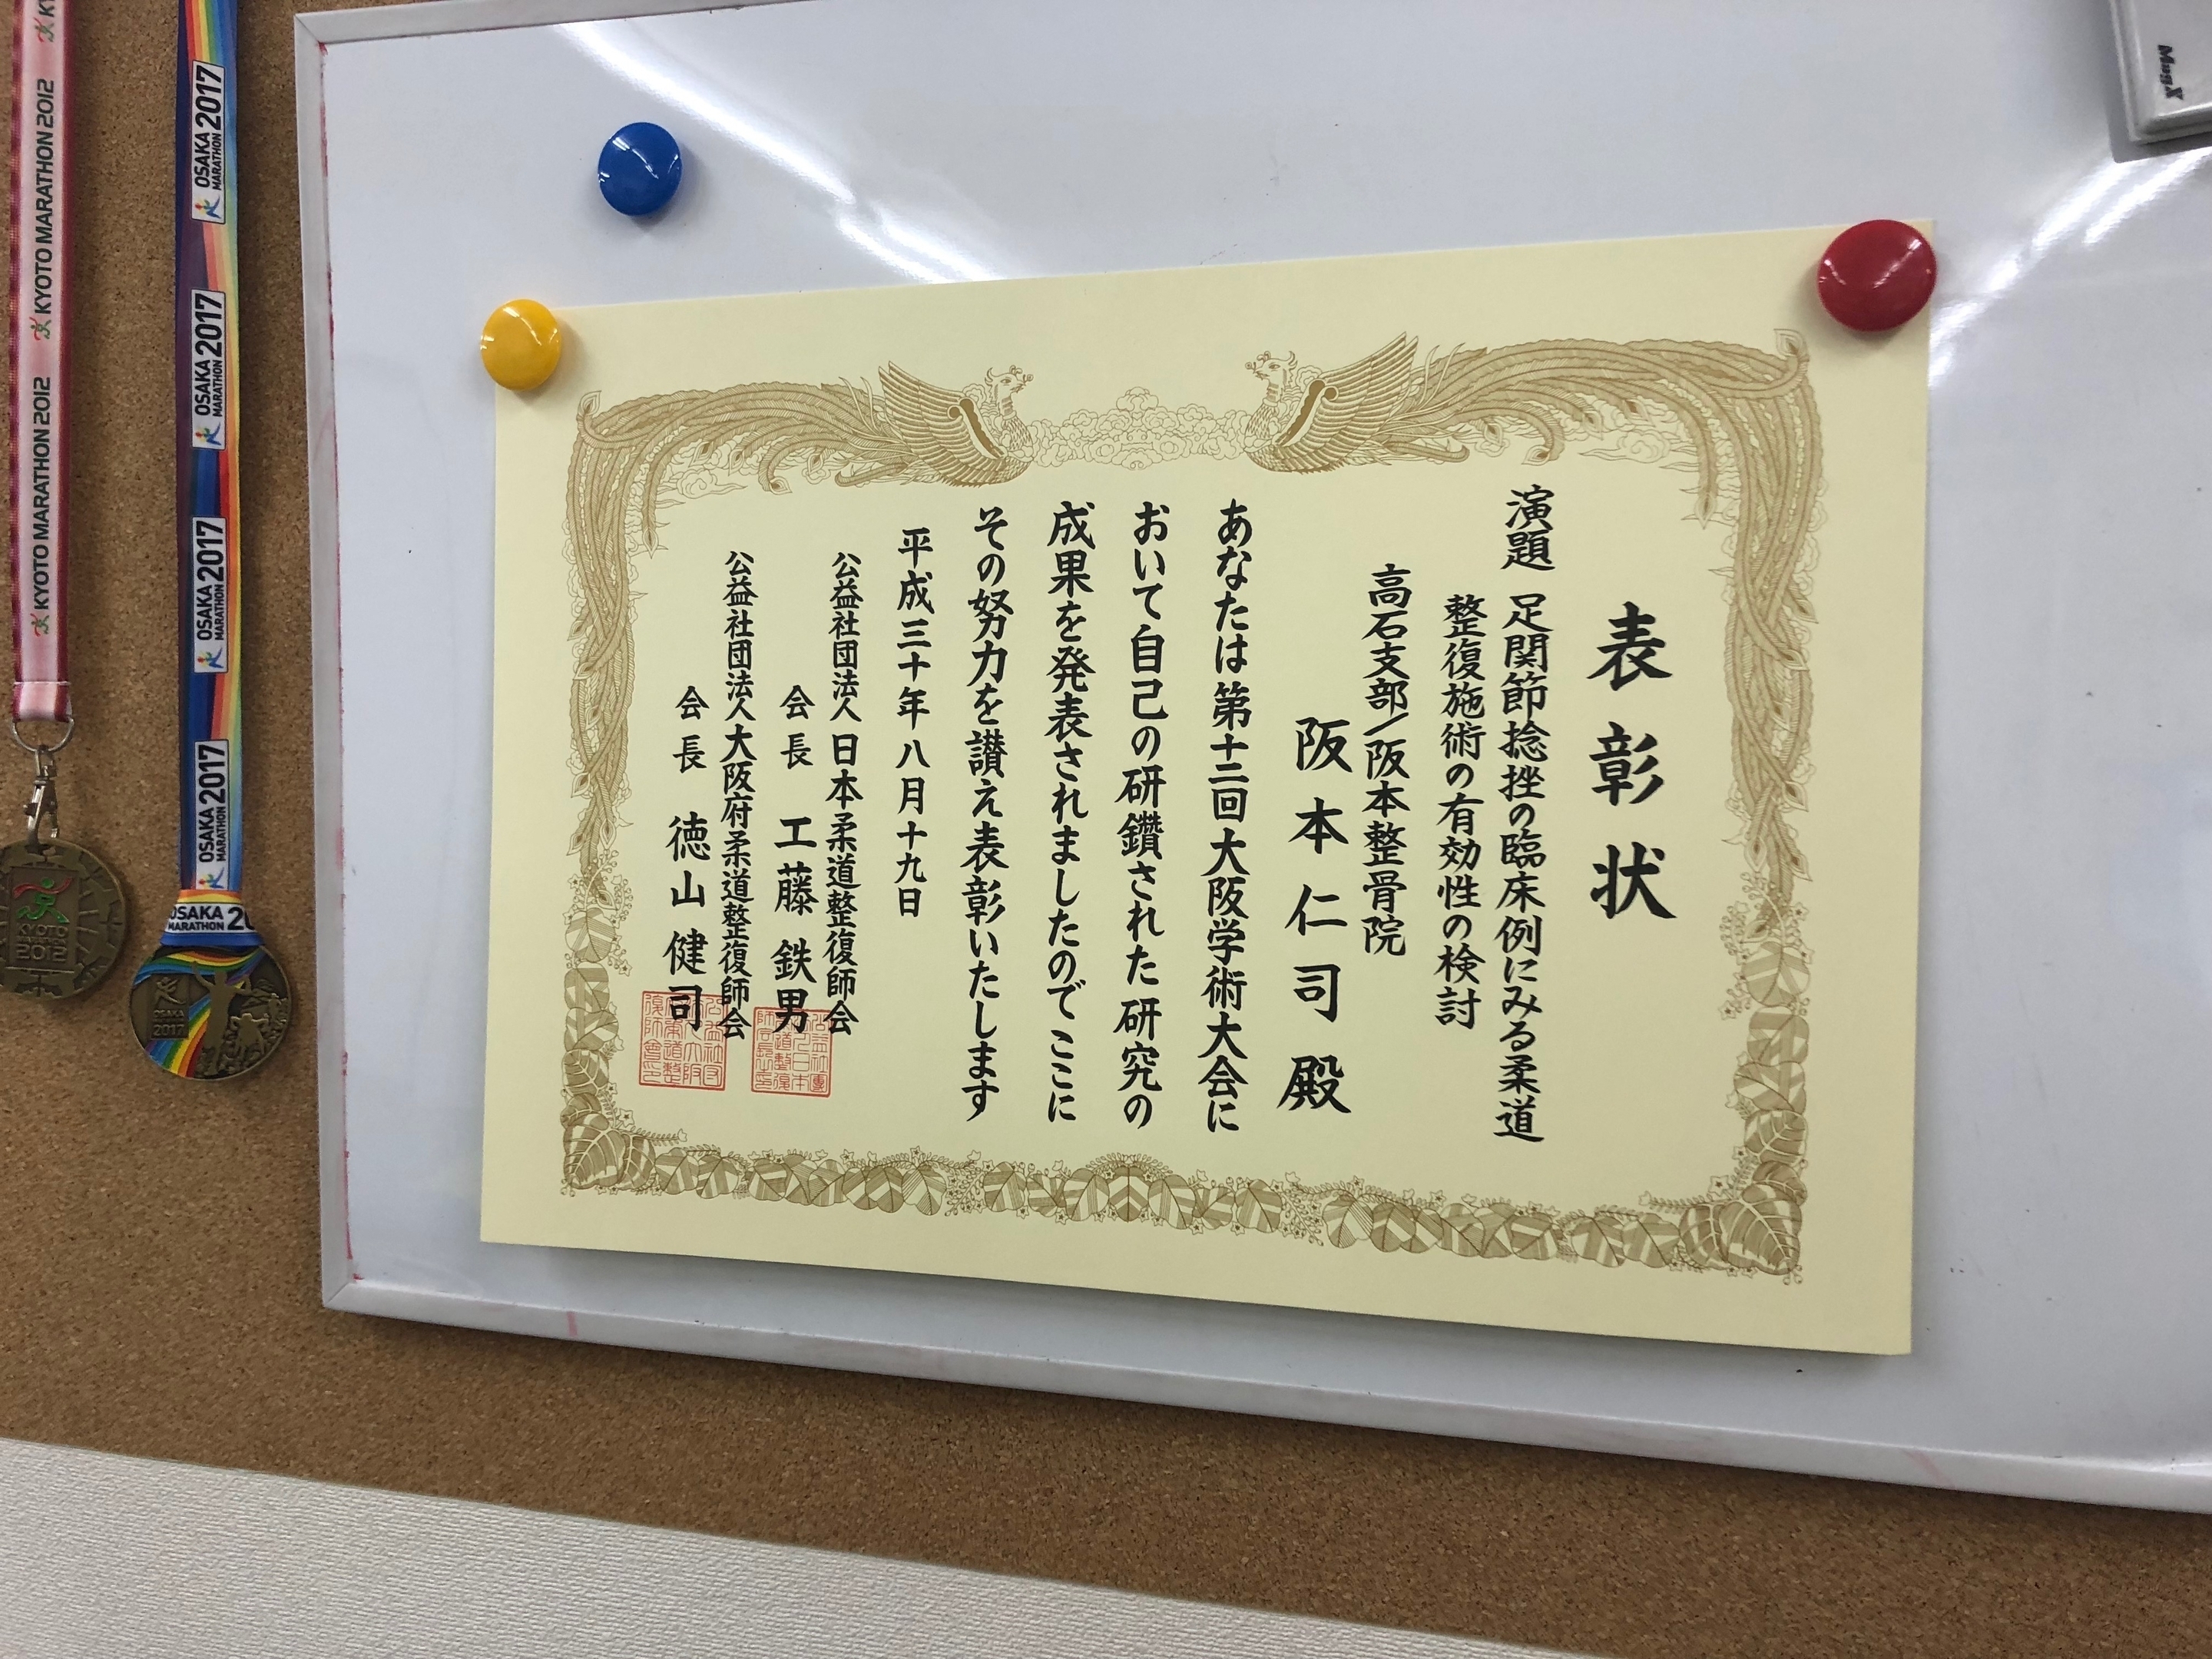 表彰状
演題 足関節捻挫の臨床例にみる柔道
整復施術の有効性の検討
高石支部/阪本整骨院
阪本仁司殿
あなたは第十二回大阪学術大会に
おいて自己の研鑽された研究の
成果を発表されましたのでここに
その努力を讃え表彰いたします
平成三十年八月十九日
公益社団法人日本柔道整復師会
会長 工藤鉄男
公益社団法人大阪府柔道整復師会
会長 徳山健司
KYOTO MARATHON 2012
KYOTO MARATHON 2012
OSAKA MARATHON 2017
OSAKA MARATHON 2017
OSAKA MARATHON 2017
OSAKA MARATHON 2017
OSAKA MARATHON 20
KYOTO
2012
OSAKA
2017
MagX